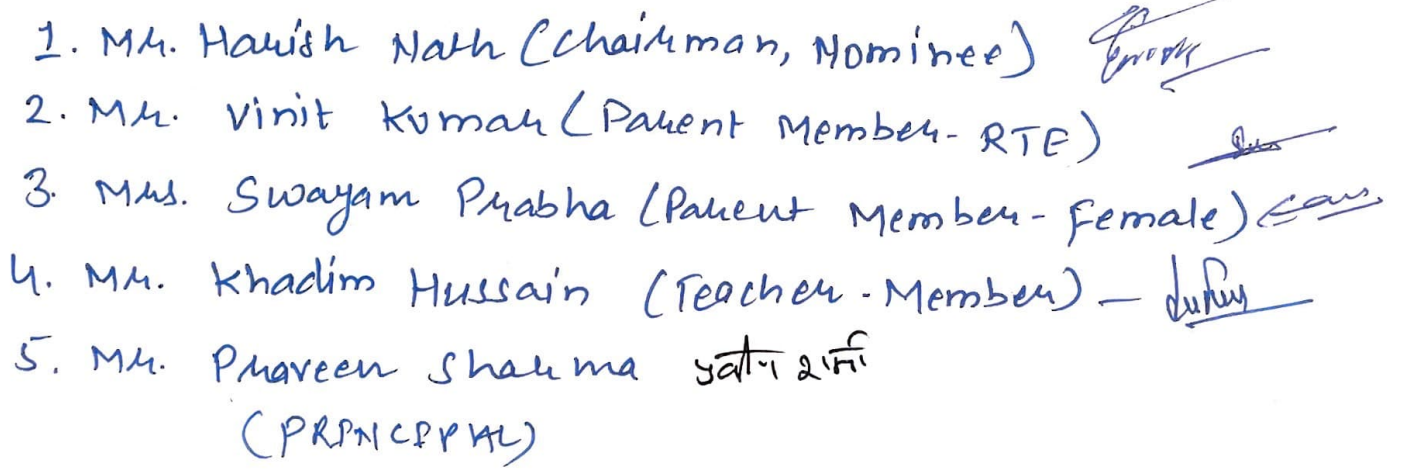 1. Mr. Harish Nath (Chairman, Nominee)
2. Mr. Vinit Kumar (Parent Member- RTE)
3. Mrs. Swayam Prabha (Parent Member- Female)
4. Mr. Khadim Hussain (Teacher - Member) -
5. Mr. Praveen Sharma प्रवीन शर्मा
(PRINCIPAL)